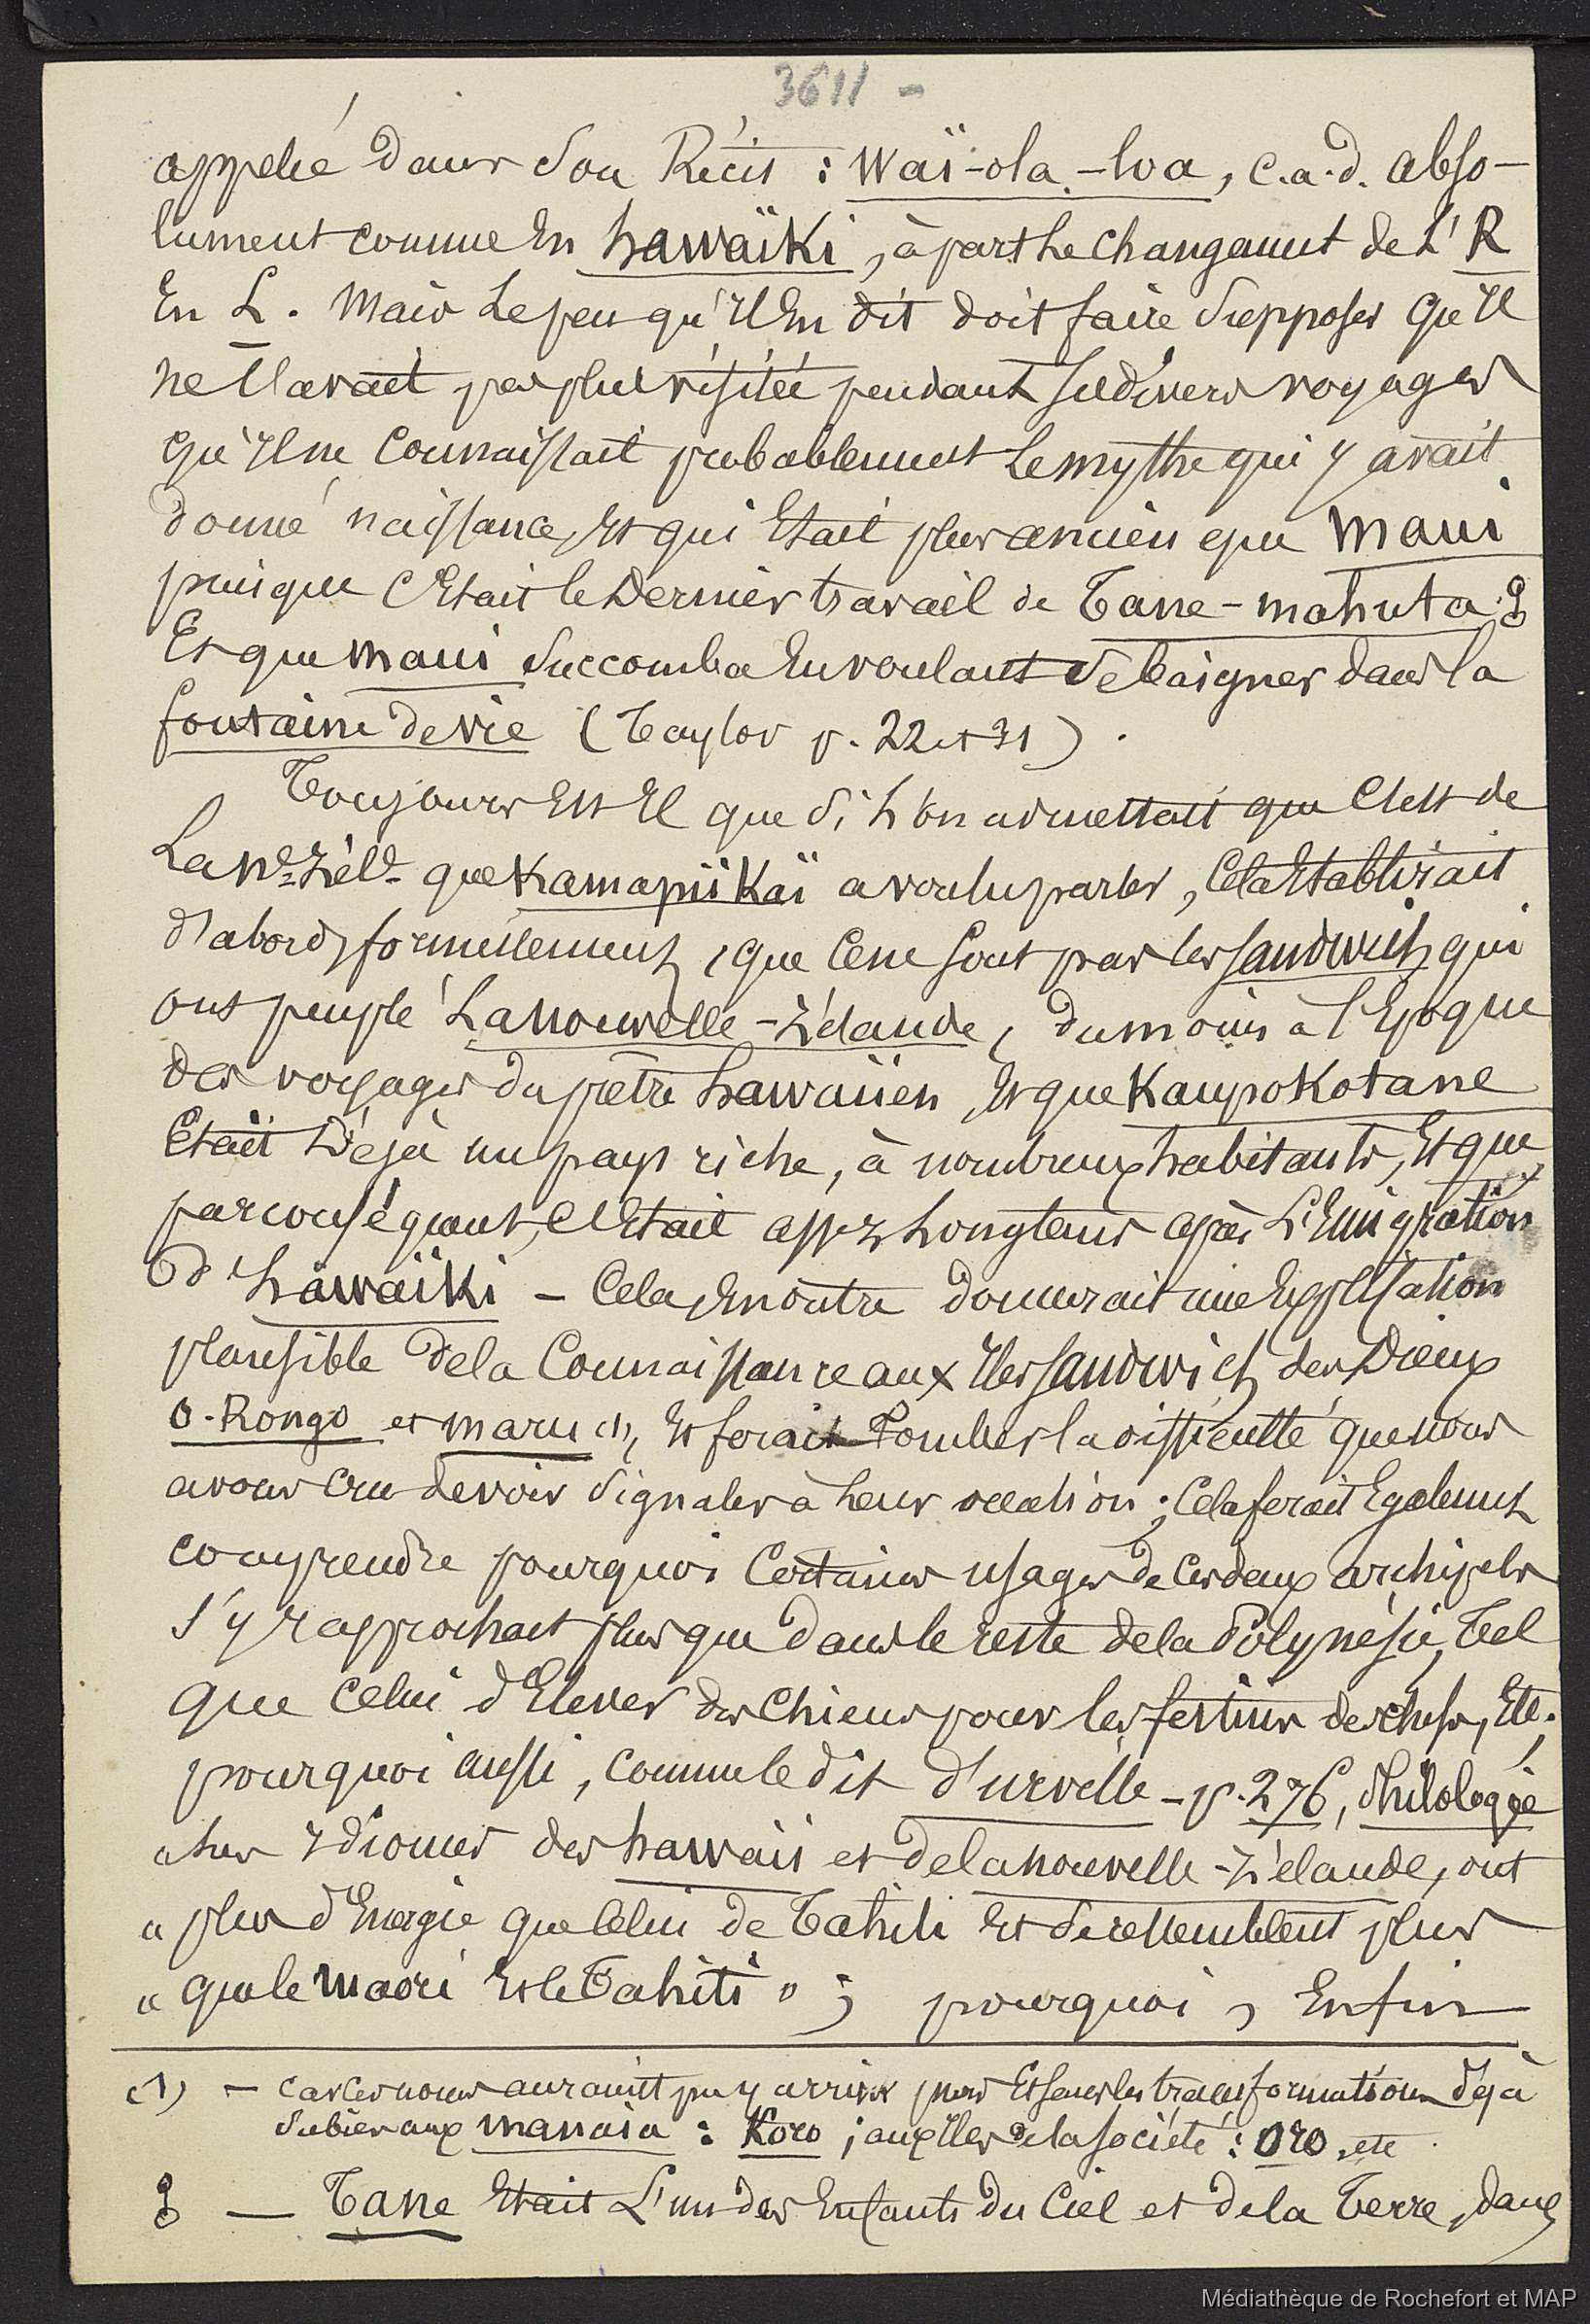 3611 -
appelé dans son Récit : Waï-ola-loa, c.a.d. abso-
lument comme En hawaïki, à part Le changement de L'R
En L. Mais Le peu qu'Il En dit doit faire supposer qu'Il
ne l'avait pas plus visitée pendant ses divers voyages
qu'Il ne Connaissait probablement Le mythe qui y avait
donné naissance, Et qui Etait plus ancien que Maui
puisque C'Etait le Dernier travail de Tane-mahuta
Et que Maui succomba En voulant se baigner dans la
fontaine de vie (Taylor p. 22 et 31).
Toujours Est Il que si L'on admettait que C'est de
La Nlle Zélde que Kamapiikaï a voulu parler, Cela Etablirait
d'abord, formellement, que Ce ne sont pas les Sandwich qui
ont peuplé La Nouvelle-Zélande, du moins à l'Epoque
des voyages du prêtre hawaiien, Et que Kaupokotane
Etait Déjà un pays riche, à nombreux habitants, Et que
par conséquent, C'Etait assez Longtems après L'Emigration
d'hawaïki - Cela, En outre donnerait une Explication
plausible de la Connaissance aux Iles Sandwich des Dieux
O-Rongo et maru (1), Et ferait Tomber la difficulté que nous
avons Cru devoir signaler à Leur occasion ; Cela ferait Egalement
comprendre pourquoi Certains usages de Ces deux archipels
s'y rapprochent plus que dans le reste de la Polynésie, Tel
que Celui d'Elever des Chiens pour les festins des chefs, Etc.
pourquoi aussi, comme le dit d'urville - p. 276, Philologie
" Les Idiomes des hawaii et de la nouvelle-Zélande, ont
" plus d'Energie que Celui de Tahiti Et se ressemblent plus
" que le Maori Et le Tahiti " ; pourquoi, Enfin
(1) - Car Ces noms auraient pu y arriver purs Et sans les transformations déjà
subies aux manaia : Koro ; aux Iles de la société : Oro, etc.
— Tane Etait L'un des Enfants du Ciel et de la Terre, dans
Médiathèque de Rochefort et MAP